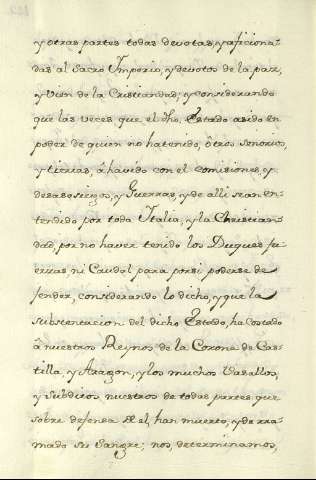 y otras partes todas devotas, y aficiona-
das al Sacro Imperio, y devotos de la paz,
y vien de la Cristiandad; y considerando
que las veces que el dho. Estado a sido en
poder de quien no ha tenido, ôtros señorios,
y tierras, â havido con el comisiones, y
desasosiegos, y Guerras, y de alli se an en-
tendido por toda Italia, y la Christian-
dad, por no haver tenido los Duques fu-
erzas ni Caudal para por si poderse de
fender, considerando lo dicho, y que la
substentacion del dicho Estado, ha Costado
â nuestros Reynos de la Corona de Cas-
tilla, y Aragon, y los muchos Vasallos,
y Subditos nuestros de todas partes que
sobre defensa de el, han muerto, y derra-
mado su Sangre; nos, determinamos,